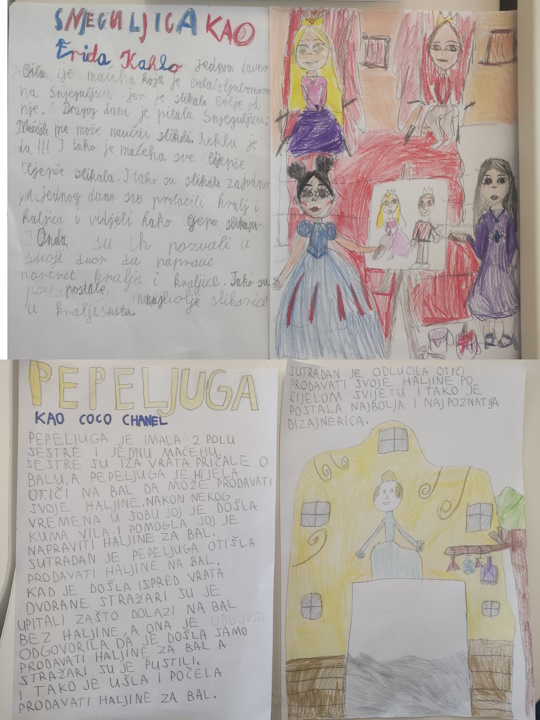 SNJEGULJICA KAO
Frida Kahlo Jednom davno
bila je maćeha koja je bila ljubomorna
na Snjeguljicu jer je slikala bolje od
nje. Drugog dana je pitala Snjeguljicu:
Možeš me može naučiti slikati. Rekla je
da!!! I tako je maćeha sve ljepše
ljepše slikala. I tako su slikale zajedno
Jednog dana su prolazili kralj i
kraljica i vidjeli kako lijepo slikaju
Onda su ih pozvali u
svoj dvor da naprave
portret kralja i kraljice. Tako su
postale najbolje slikarice
u kraljestvu.
PEPELJUGA
KAO COCO CHANEL
PEPELJUGA JE IMALA 2 POLU
SESTRE I JEDNU MAĆEHU.
SESTRE SU IZA VRATA PRIČALE O
BALU, A PEPELJUGA JE HTJELA
OTIĆI NA BAL DA MOŽE PRODAVATI
SVOJE HALJINE. NAKON NEKOG
VREMENA U SOBU JOJ JE DOŠLA
KUMA VILA I POMOGLA JOJ JE
NAPRAVITI HALJINE ZA BAL.
SUTRADAN JE PEPELJUGA OTIŠLA
PRODAVATI HALJINE NA BAL.
KAD JE DOŠLA ISPRED VRATA
DVORANE STRAŽARI SU JE
UPITALI ZAŠTO DOLAZI NA BAL
BEZ HALJINE, A ONA JE
ODGOVORILA DA JE DOŠLA SAMO
PRODAVATI HALJINE ZA BAL A
STRAŽARI SU JE PUSTILI.
I TAKO JE UŠLA I POČELA
PRODAVATI HALJINE ZA BAL.
SUTRADAN JE ODLUČILA OTIĆI
PRODAVATI SVOJE HALJINE PO
CIJELOM SVIJETU I TAKO JE
POSTALA NAJBOLJA I NAJPOZNATIJA
DIZAJNERICA.